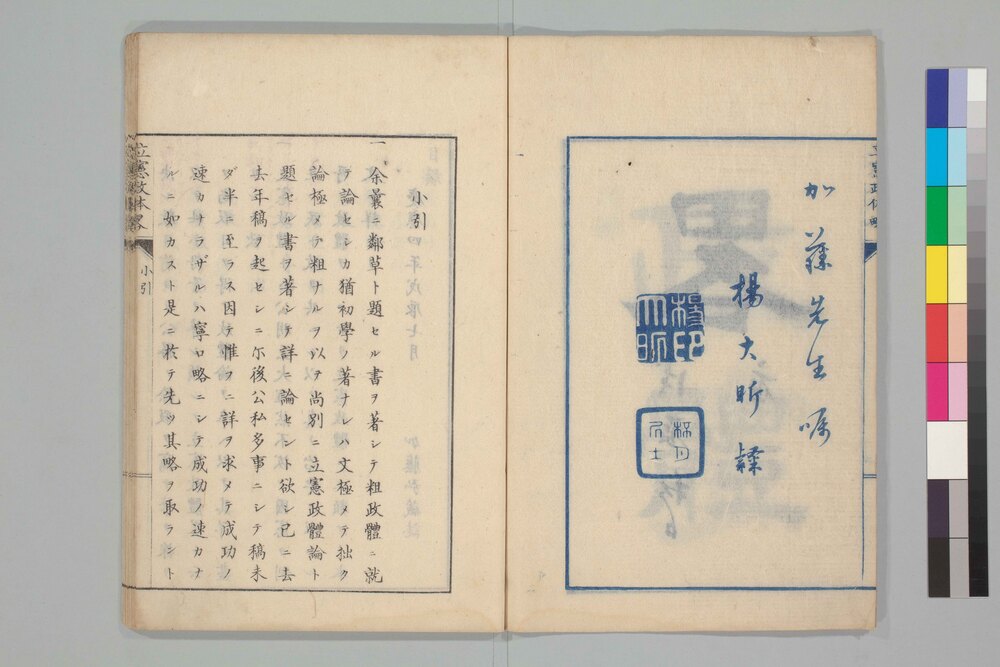 加藤先生嘱
楊大昕
楊印
大昕
立憲政体略
小引
一 余曩ニ鄰草ト題セル書ヲ著シテ粗政體ニ就
テ論セシカ猶初學ノ著ナレハ文極メテ拙ク
論極メテ粗ナルヲ以テ尚別ニ立憲政體論ト
題セル書ヲ著シテ詳ニ論セント欲シ已ニ去
去年稿ヲ起センニ尓後公私多事ニシテ稿未
タ半ニ至ラス因テ惟フニ詳ヲ求メテ成功ノ
速カナラザルハ寧ロ略ニシテ成功ノ速カナ
ルニ如カスト是ニ於テ先ツ其略ヲ取ラント
立憲政体畧
小引